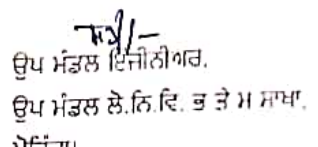 ਸਹੀ/-
ਉਪ ਮੰਡਲ ਇੰਜੀਨੀਅਰ,
ਉਪ ਮੰਡਲ ਲੋ.ਨਿ.ਵਿ. ਭ ਤੇ ਮ ਸਾਖਾ,